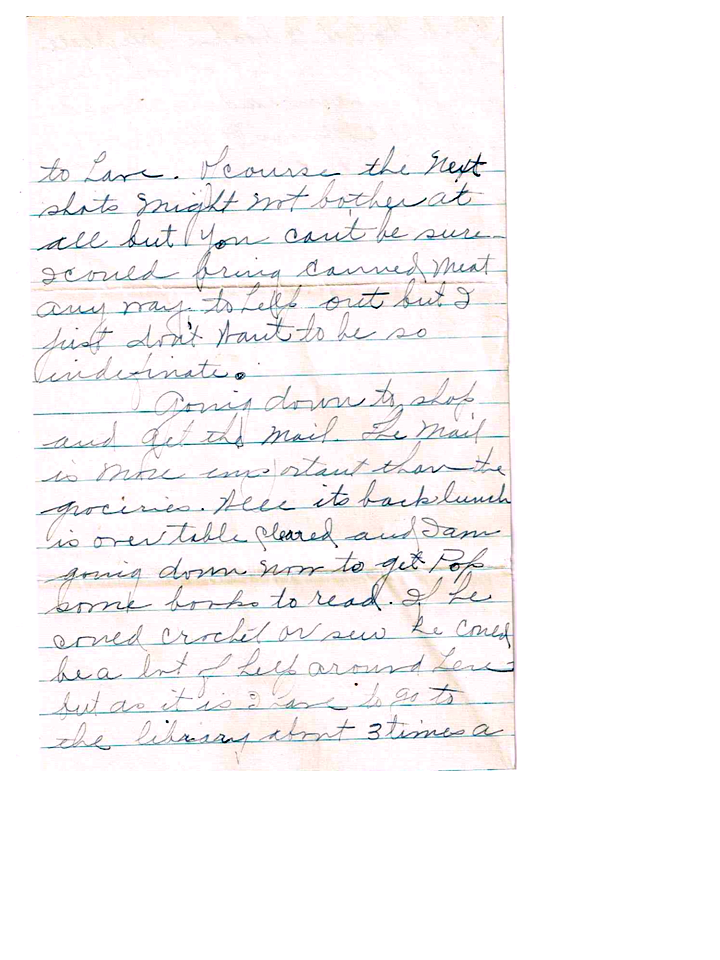 to have. Ofcourse the Next
shots might not bother at
all but you can't be sure
I could bring canned Meat
any way to help out but I
just don't want to be so
indefinate.
Going down to shop
and get the Mail. The Mail
is more important than the
groceries. Well its back lunch
is over table cleared and I am
going down now to get Pop
some books to read. If he
could crochet or sew he could
be a lot of help around here
but as it is I have to go to
the library about 3 times a